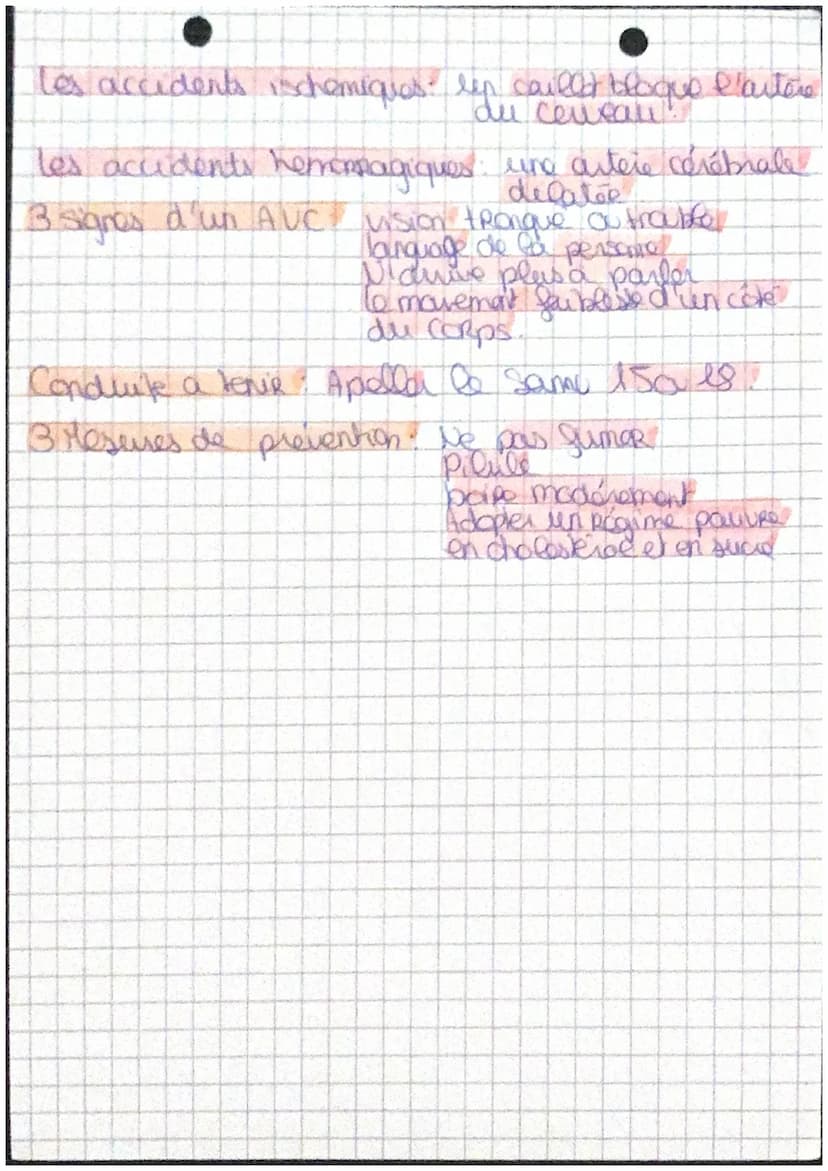 Les accidents ischemiques: un caillot bloque l'artère
du cerveau.
Les accidents hemorragiques: une arterie cérébrale
delatée
3 signes d'un AVC vision tronque ou trouble
language de la personne
N'arrive plus a parler
le mouvement faiblesse d'un côté
du corps.
Conduite a tenir: Apeller le Samu 15 a 18.
3 Mesures de prévention: Ne pas fumer
pilule
boire modérement
Adopter un régime pauvre
en cholesterol et en sucre